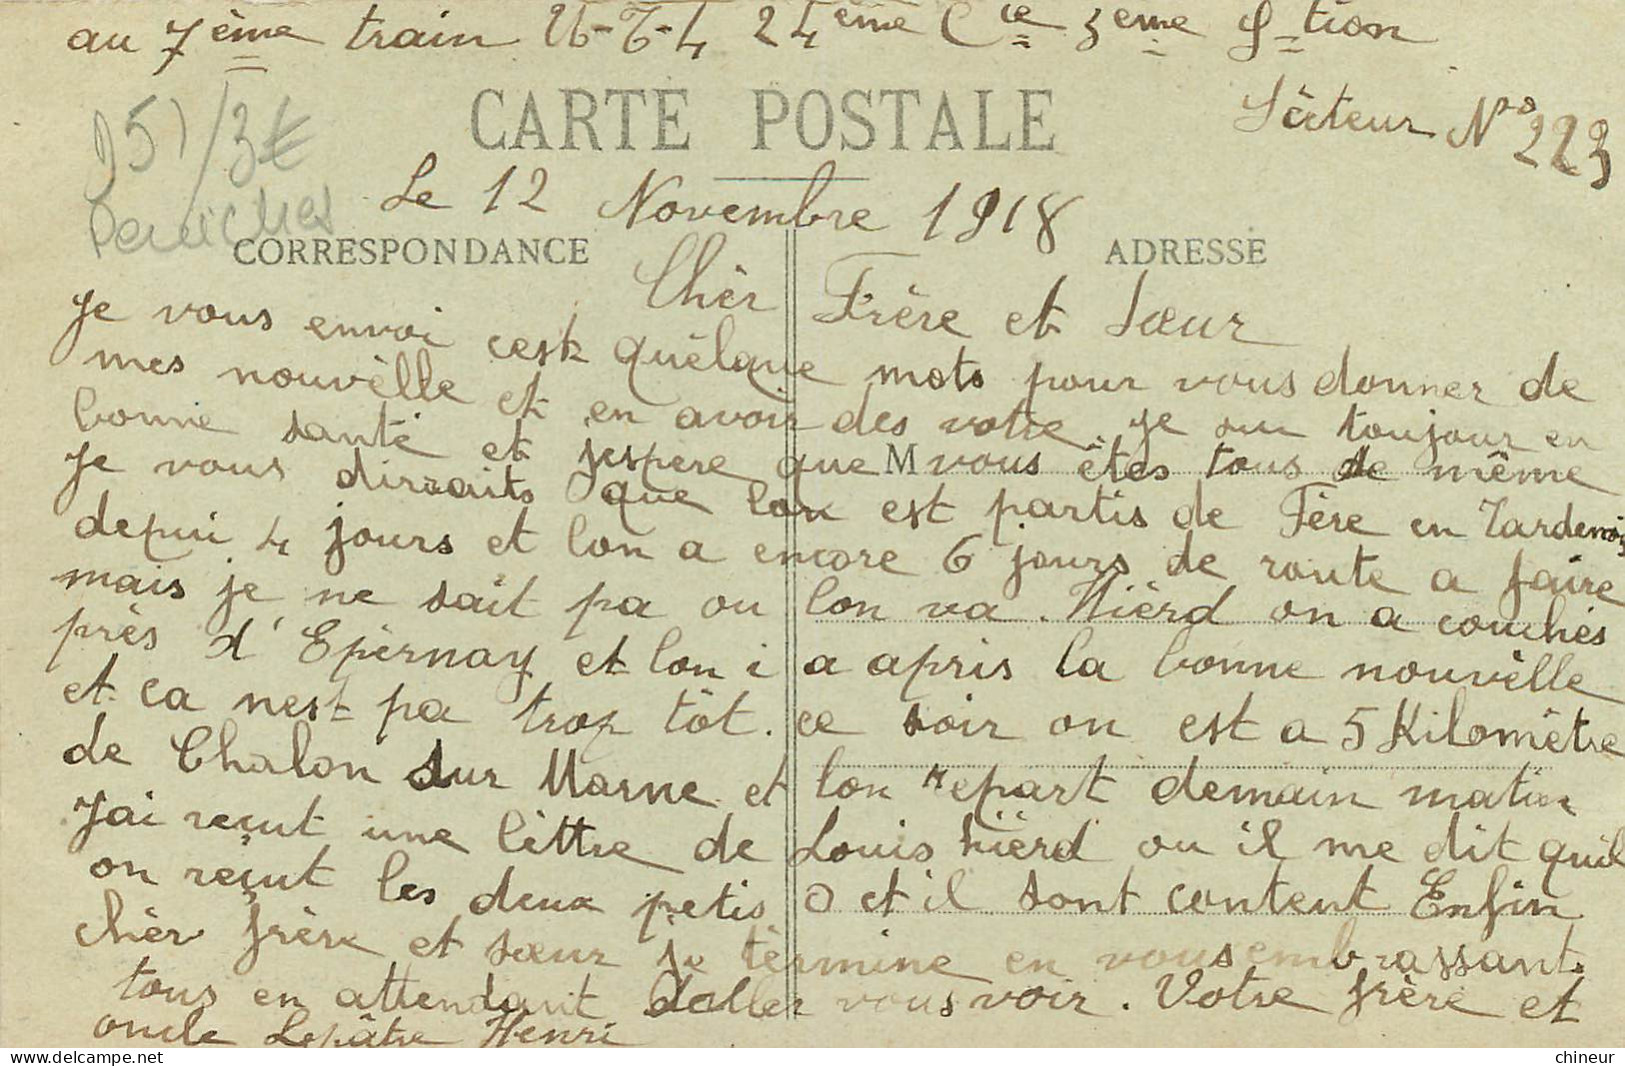 au 7ème train U-T-4 24ème Cie 3eme S-tion
CARTE POSTALE
Sècteur Nos 223
951/3€
Peniches
Le 12 Novembre 1918
CORRESPONDANCE
ADRESSE
Chèr Frère et Sœur
Je vous envoi cest quélque mots pour vous donner de
mes nouvèlle et en avoir des votre. Je sui toujour en
bonne santé et jespere que M vous êtes tous de même
Je vous dirraits que lon est partis de Fère en Tardenois
depui 4 jours et lon a encore 6 jours de route a faire
mais je ne sait pa ou lon va. Hièrd on a couchés
près d'Epèrnay et lon i a apris la bonne nouvèlle
et ca nest pa trop tôt. ce soir on est a 5 Kilomètre
de Chalon sur Marne et lon repart demain matin
J'ai reçut une lèttre de Louis hièrd ou il me dit quil
on reçut les deux petis O et il sont content Enfin
chèr frère et sœur je tèrmine en vous embrassant
tous en attendant daller vous voir. Votre frère et
oncle Lepâtre Henri
chineur